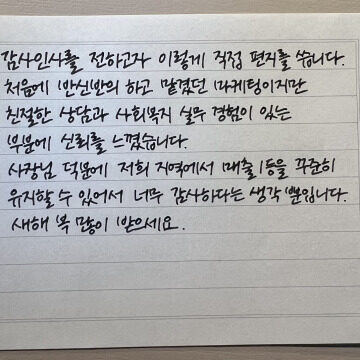 감사인사를 전하고자 이렇게 직접 편지를 씁니다.
처음에 반신반의 하고 맡겼던 마케팅이지만
친절한 상담과 사회복지 실무 경험이 있는
부분에 신뢰를 느꼈습니다.
사장님 덕분에 저희 지역에서 매출 1등을 꾸준히
유지할 수 있어서 너무 감사하다는 생각 뿐입니다.
새해 복 많이 받으세요.